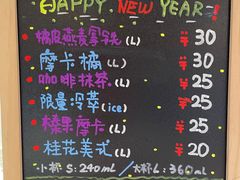 HAPPY NEW YEAR!
橘皮燕麦拿铁(L) ¥30
摩卡橘(L) ¥30
咖啡抹茶(L) ¥25
限量冷萃(ice) ¥25
榛果摩卡(L) ¥25
桂花美式(L) ¥20
小杯 S:240ml / 大杯L:360ml